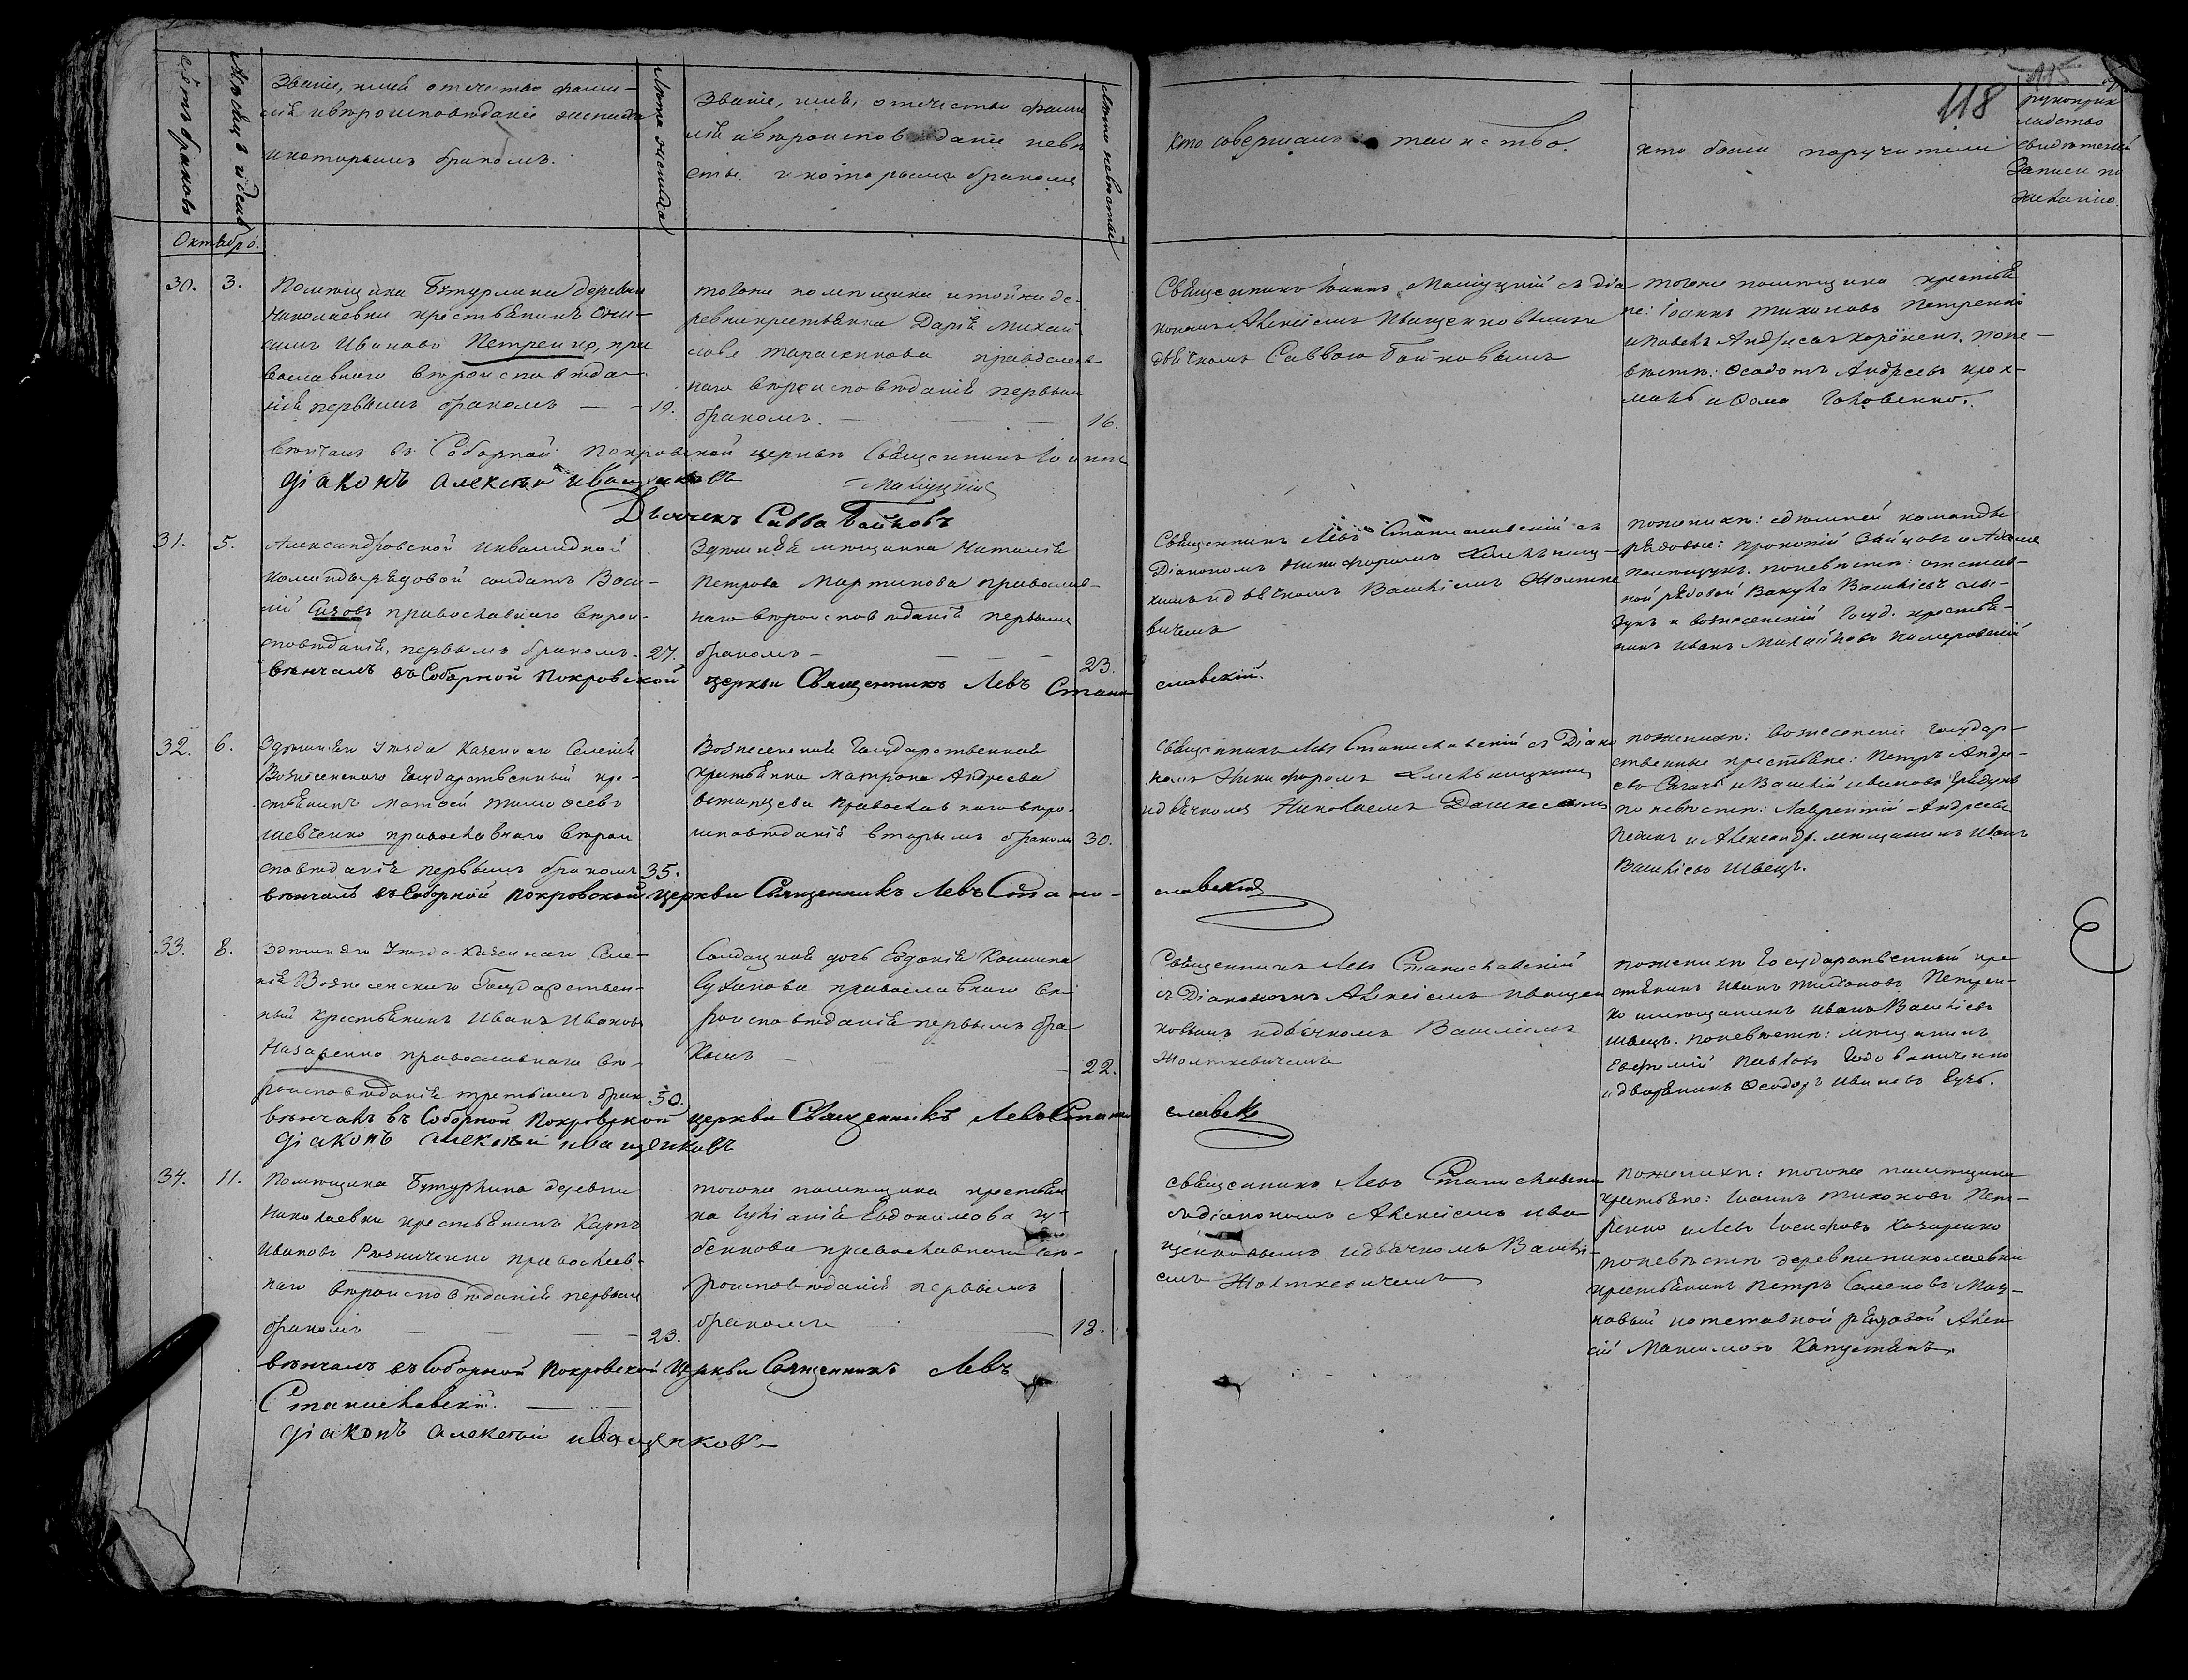 118
115
Счётъ браковъ
Мѣсяцъ и день
Званіе, имя отечество фами-
лія и вѣроисповѣданіе жениха
и которымъ бракомъ.
Лѣта жениха
Званіе, имя, отечество фами
лія и вѣроисповѣданіе невѣ
сты и которымъ бракомъ
Лѣта невѣсты
Кто совершалъ таинство.
кто были поручители
рукоприк
ладство
свидѣтелей
Записи по
желанію.
Октябрь.
30. 3.
Помѣщика Бутурлина деревни
Николаевки крестьянинъ Они-
симъ Ивановъ Петренко, пра
вославнаго вѣроисповѣда-
нія первымъ бракомъ — — 19.
тогоже помѣщика и тойже де-
ревни крестьянка Дарія Михай
лова православ
наго вѣроисповѣданія первым
бракомъ. — — 16.
Священникъ Іоаннъ Малуцкій съ діа
кономъ Алексіемъ Иващенковымъ и
дьячкомъ Саввою Бойковымъ
тогоже помѣщика крестья
не: Іоаннъ Тихоновъ Петренко
по не-
вѣстѣ: Ѳеодотъ Андреевъ
и Ѳома Яковенко.
вѣнчалъ въ Соборной Покровской церкви Священникъ Іоаннъ
Малуцкій
діаконъ алексѣй иващенковъ
Дьячекъ Савва Бойковъ
31. 5.
Александровской Инвалидной
команды рядовой солдатъ Васи-
лій Сизовъ православнаго вѣрои-
сповѣданія, первымъ бракомъ. 27.
Здѣшняя мѣщанка Наталія
Петрова Мартинова православ-
наго вѣроисповѣданія первымъ
бракомъ — — — 23.
Священникъ Левъ Станиславскій съ
Діакономъ Никифоромъ Хмельниц-
кимъ и дьячкомъ Василіемъ Жолтке
вичемъ
по женихѣ: здѣшней команды
рядовые: Прокопій Зайцовъ и Адамъ
по невѣстѣ: отстав-
ной рядовой Вакула Васильевъ
и вознесенскій Госуд. крестья-
нинъ Иванъ Михайловъ
вѣнчалъ въ Соборной Покровской церкви Священникъ Левъ Стани
славскій.
32. 6.
Здѣшняго Уѣзда Казеннаго Селенія
Вознесенскаго Государственный кре-
стьянинъ Матѳей Тимоѳеевъ
Шевченко православнаго вѣрои
сповѣданія первымъ бракомъ 35.
Вознесенская Государственная
крестьянка Матрона Андреева
Остапцева православнаго вѣро-
исповѣданія вторымъ бракомъ 30.
Священникъ Левъ Станиславскій съ Діако
номъ Никифоромъ Хмельницкимъ
и дьячкомъ Николаемъ Дашкевичемъ
по женихѣ: вознесенскіе Государ-
ственные крестьяне: Петръ Андре-
евъ и Василій Ивановъ
по невѣстѣ: Лаврентій Андреевъ
и Александр. мѣщанинъ Иванъ
Васильевъ Швецъ.
вѣнчалъ въ Соборной Покровской церкви Священникъ Левъ Стани-
славскій
33. 8.
Здѣшняго Уѣзда Казеннаго Селе-
нія Вознесенскаго Государствен-
ный Крестьянинъ Иванъ Ивановъ
Назаренко православнаго вѣ-
роисповѣданія третьимъ брак 50.
Солдацкая дочь Евдокія Космина
Суханова православнаго вѣ
роисповѣданія первымъ бра
комъ — — 22.
Священникъ Левъ Станиславскій
съ Діакономъ Алексіемъ Иващен
ковымъ и дьячкомъ Василіемъ
Жолткевичемъ
по женихѣ Государственный кре
стьянинъ Иванъ Тихоновъ Петрен-
ко и мѣщанинъ Иванъ Васильевъ
Швецъ. по невѣстѣ: мѣщанинъ
Евфимій Павловъ
и дворянинъ Ѳеодоръ Ивановъ
вѣнчалъ въ Соборной Покровской церкви Священникъ Левъ Стани
славск
діаконъ алексѣй иващенковъ
34. 11.
Помѣщика Бутурлина деревни
Николаевки крестьянинъ Карпъ
Ивановъ Рѣзниченко православ-
наго вѣроисповѣданія первымъ
бракомъ — — — 23.
тогоже помѣщика крестьян
ка Гликерія Евдокимова Гу-
бенкова православнаго вѣ-
роисповѣданія первымъ
бракомъ — 18.
Священникъ Левъ Станиславскі
съ діакономъ Алексіемъ Ива
щенковымъ и дьячкомъ Василі-
емъ Жолткевичемъ
по женихѣ: тогоже помѣщика
крестьяне: Іоаннъ Тихоновъ Пет-
ренко и Левъ Іосифовъ Назаренко
по невѣстѣ деревни Николаевки
крестьянинъ Петръ Семеновъ Маз-
новый и отставной рядовой Алек
сій Максимовъ Капустянъ.
вѣнчалъ въ Соборной Покровской Церкви Священникъ Левъ
Станиславскій. —
діаконъ алексѣй иващенковъ